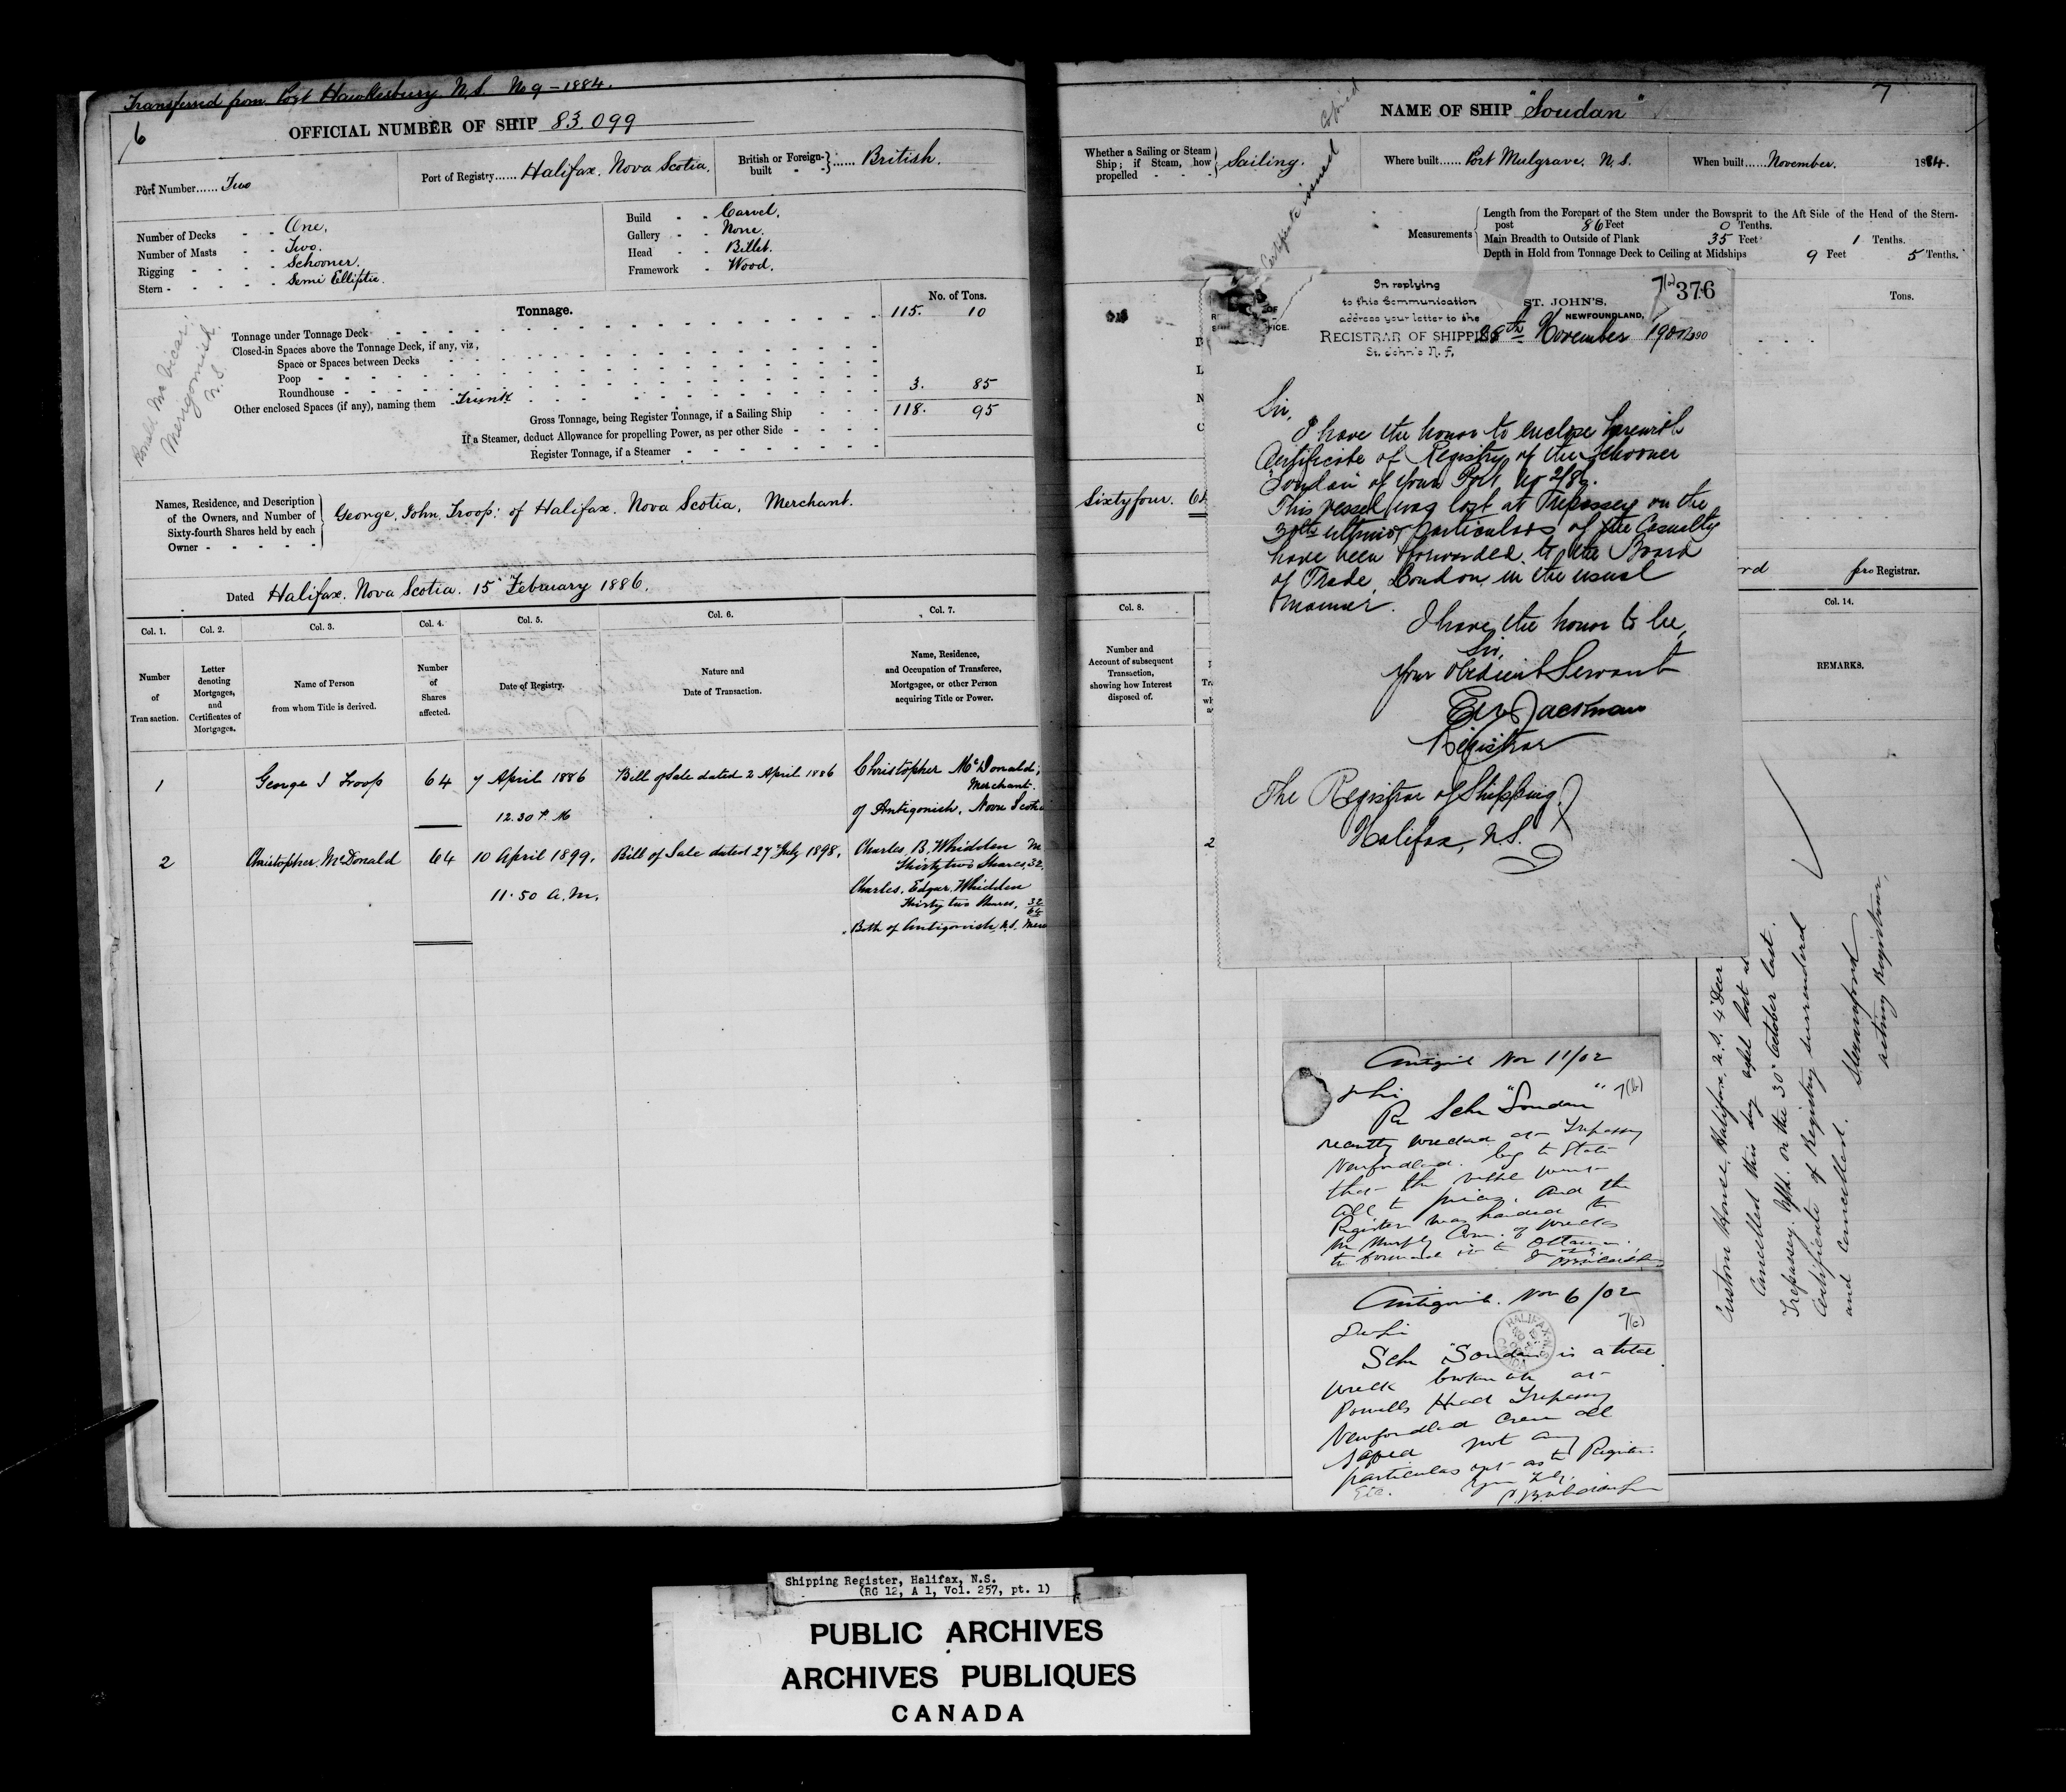 Transferred from Port Hawkesbury N.S. No 9 - 1884.
6
OFFICIAL NUMBER OF SHIP 83.099
Port Number...... Two
Port of Registry...... Halifax. Nova Scotia.
British or Foreign-built - - } ...... British.
Number of Decks - - One.
Number of Masts - - Two.
Rigging - - - - Schooner.
Stern - - - - - Semi Elliptic.
Build - - Carvel.
Gallery - - None.
Head - - Billet.
Framework - Wood.
Tonnage.
No. of Tons.
Tonnage under Tonnage Deck 115. 10
Closed-in Spaces above the Tonnage Deck, if any, viz,
Space or Spaces between Decks
Poop
Roundhouse
Other enclosed Spaces (if any), naming them Trunk 3. 85
Gross Tonnage, being Register Tonnage, if a Sailing Ship 118. 95
If a Steamer, deduct Allowance for propelling Power, as per other Side
Register Tonnage, if a Steamer
Merigomish.
N.S.
Names, Residence, and Description
of the Owners, and Number of
Sixty-fourth Shares held by each
Owner - - - - -
George, John, Troop: of Halifax. Nova Scotia, Merchant.
Dated Halifax. Nova Scotia. 15 February 1886.
Col. 1. Col. 2. Col. 3. Col. 4. Col. 5. Col. 6. Col. 7.
Number of Transaction.
Letter denoting Mortgages, and Certificates of Mortgages.
Name of Person from whom Title is derived.
Number of Shares affected.
Date of Registry.
Nature and Date of Transaction.
Name, Residence, and Occupation of Transferee, Mortgagee, or other Person acquiring Title or Power.
1 George J Troop 64 7 April 1886 Bill of Sale dated 2 April 1886 Christopher McDonald,
Merchant.
12.30 P. M of Antigonish. Nova Scotia
2 Christopher McDonald 64 10 April 1899. Bill of Sale dated 27 July 1898. Charles, B. Whidden
Thirty two Shares, 32.
11.50 A.M. Charles, Edgar, Whidden
Thirty two Shares, 32
64
Both of Antigonish, N.S.
7
NAME OF SHIP "Soudan"
Certificate issued Copied
Whether a Sailing or Steam
Ship; if Steam, how
propelled - - - } Sailing.
Where built...... Port Mulgrave. N.S.
When built...... November. 1884.
Measurements
Length from the Forepart of the Stem under the Bowsprit to the Aft Side of the Head of the Stern-
post 86 Feet 0 Tenths.
Main Breadth to Outside of Plank 35 Feet 1 Tenths.
Depth in Hold from Tonnage Deck to Ceiling at Midships 9 Feet 5 Tenths.
Tons.
Sixty four. 64
pro Registrar.
Col. 8.
Number and Account of subsequent Transaction, showing how Interest disposed of.
Col. 14.
REMARKS.
2
7(a) 376
In replying
to this Communication
address your letter to the
REGISTRAR OF SHIPPING
St. John's N.F.
ST. JOHN'S,
NEWFOUNDLAND,
28th November 1902
Sir,
I have the honor to enclose herewith
Certificate of Registry of the Schooner
Soudan of your Port, No 2/86.
This vessel was lost at Trepassey on the
30th ultimo, particulars of the Casualty
have been forwarded to the Board
of Trade, London, in the usual
manner.
I have the honor to be,
Sir,
Your obedient Servant
Jackman
Registrar
The Registrar of Shipping
Halifax, N.S.
Antigonish Nov 11/02
7(b)
Dr Sir
Re Schr "Soudan"
recently wrecked at Trepassey
Newfoundland. beg to state
that the vessel went
all to pieces. and the
Register was handed to
Mr Murphy Com. of wrecks
to forward it to Ottawa.
Antigonish. Nov 6/02
7(c)
HALIFAX N.S.
CANADA
Dr Sir
Schr "Soudan" is a total
wreck broken up at
Powells Head Trepassey
Newfoundland Crew all
saved not any
particulars yet as to Register
Etc. Yours Truly
Custom House, Halifax, N.S. 4 Decr.
Cancelled this day vessel lost at
Trepassey. Nfld. on the 30 October last.
Certificate of Registry surrendered
and cancelled.
acting Registrar.
Shipping Register, Halifax, N.S.
(RG 12, A 1, Vol. 257, pt. 1)
PUBLIC ARCHIVES
ARCHIVES PUBLIQUES
CANADA